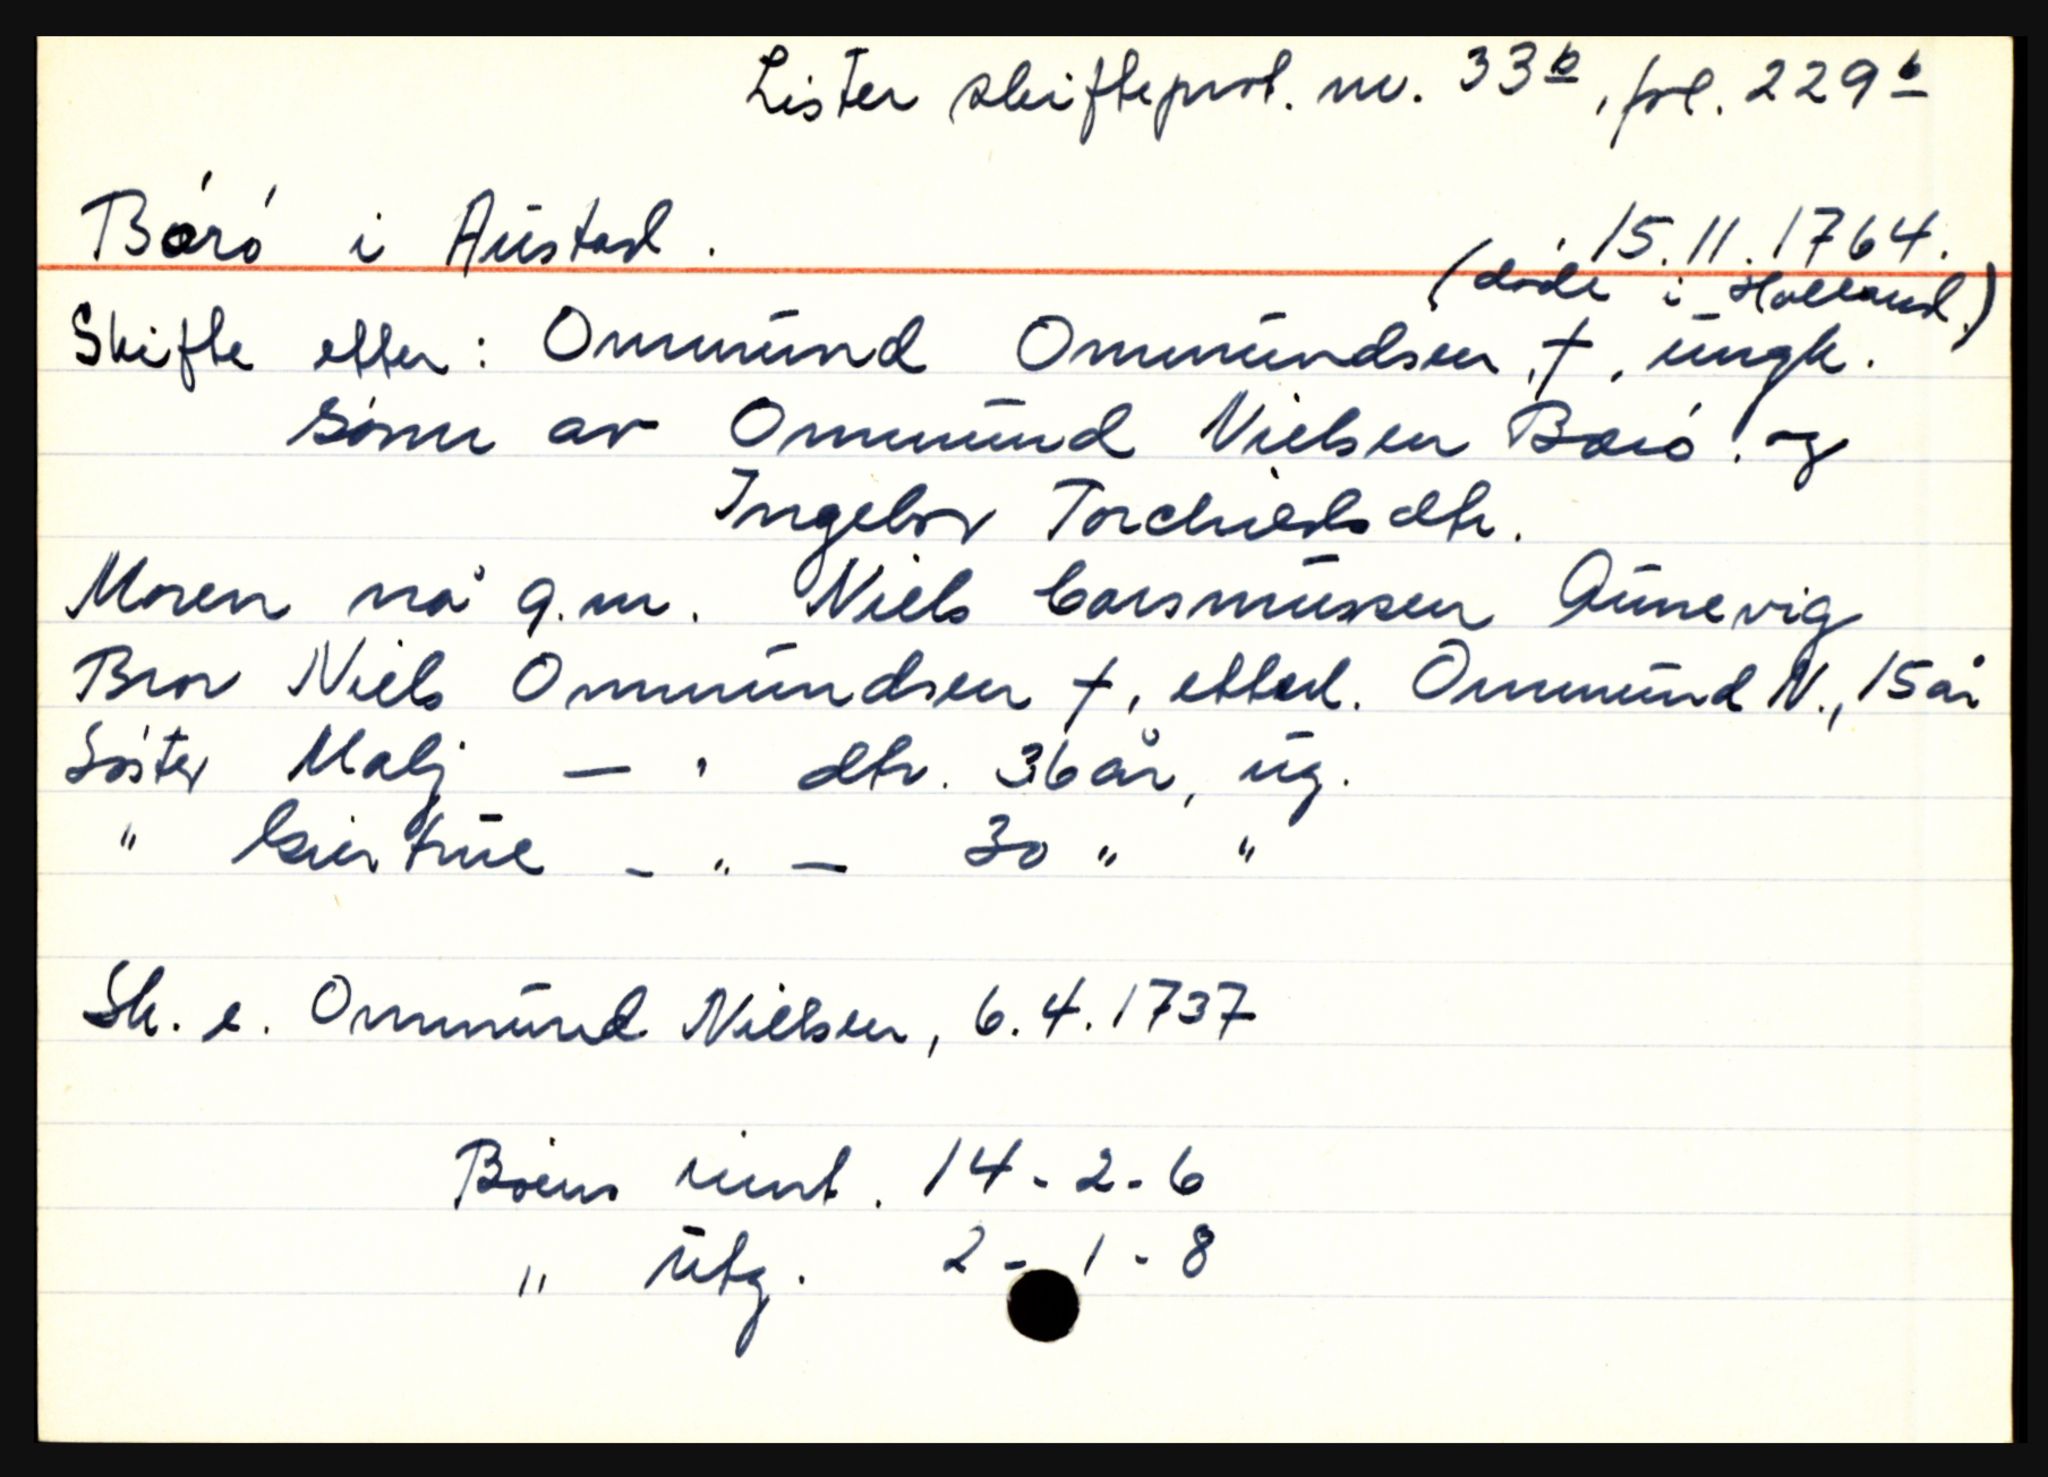 Lister skifteprot. nr. 33b, fol. 229b
Bóró i Aústad. 15.11.1764.
(døde i Holland.)
Skifte etter: Ommúnd Ommúndsen, †, úngk.
sønn av Ommúnd Nielsen Boró og
Ingebor Torchildsdtr.
Moren nå g.m. Niels Gorsmússen Qúnevig
Bror Niels Ommúndsen †, etterl. Ommúnd N., 15 år
Søster Malj — " dtr. 36 år, úg.
" Giertrúe - " — 30 " "
Sk. e. Ommúnd Nielsen, 6.4.1737
Boens innt. 14-2-6
" útg. 2-1-8